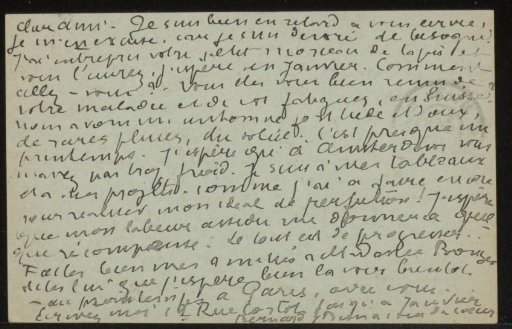 cher ami. Je suis bien en retard à vous écrire,
je m'en excuse, car je suis dévoré de besogne.
J'ai entrepris votre petit morceau de tapis et
vous l'aurez, j'espère, en Janvier. Comment
allez-vous? Vous êtes vous bien remis de
votre maladie et de vos fatigues, en Suisse
nous avons un automne et doux,
de rares pluies, du soleil. C'est presque un
printemps. J'espère qu'à Amsterdam vous
n'avez pas trop froid. Je suis à mes tableaux
et à mes projets. comme j'ai à faire encore
pour réaliser mon idéal de perfection! J'espère
que mon labeur assidu me donnera quel
que récompense. Le tout est de progresser.
Faites bien mes amitiés à Madame
dites lui que j'espère bien la voir bientôt.
au printemps à Paris, avec vous.
Ecrivez moi 12 Rue Cortot jusqu'à Janvier
Bernard de coeur